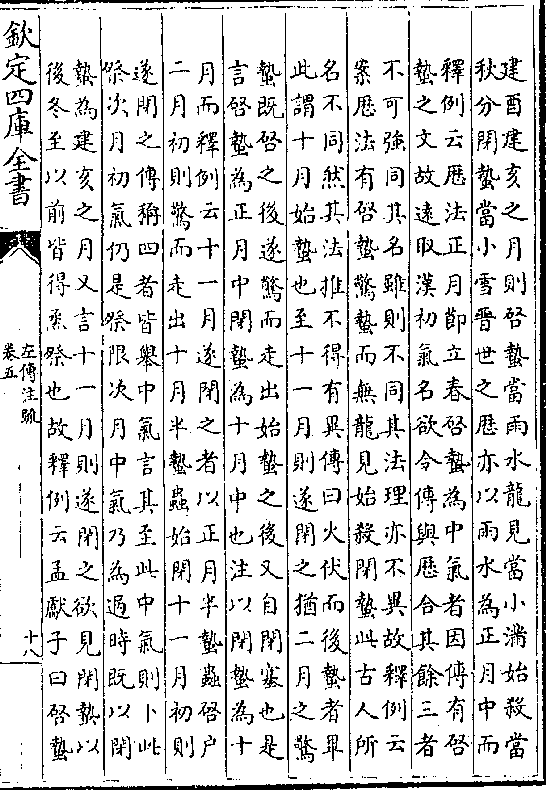 建酉建亥之月則啓蟄當雨水龍見當小滿始殺當
秋分閉蟄當小雪晉世之歴亦以雨水為正月中而
釋例云歴法正月節立春啓蟄為中氣者因傳有啓
蟄之文故遠取漢初氣名欲令傳與歴合其餘三者
不可強同其名雖則不同其法理亦不異故釋例云
案歴法有啓蟄驚蟄而無龍見始殺閉蟄此古人所
名不同然其法推不得有異傳曰火伏而後蟄者畢
此謂十月始蟄也至十一月則遂閉之猶二月之驚
蟄既啓之後遂驚而走出始蟄之後又自閉塞也是
言啓蟄為正月中閉蟄為十月中也注以閉蟄為十
月而釋例云十一月遂閉之者以正月半蟄蟲啓户
二月初則驚而走出十月半蟄蟲始閉十一月初則
遂閉之傳稱四者皆舉中氣言其至此中氣則卜此
祭次月初氣仍是祭限次月中氣乃為過時既以閉
蟄為建亥之月又言十一月則遂閉之欲見閉蟄以
後冬至以前皆得烝祭也故釋例云孟獻子曰啓蟄
欽定四庫全書
左傳注疏
卷五
十八